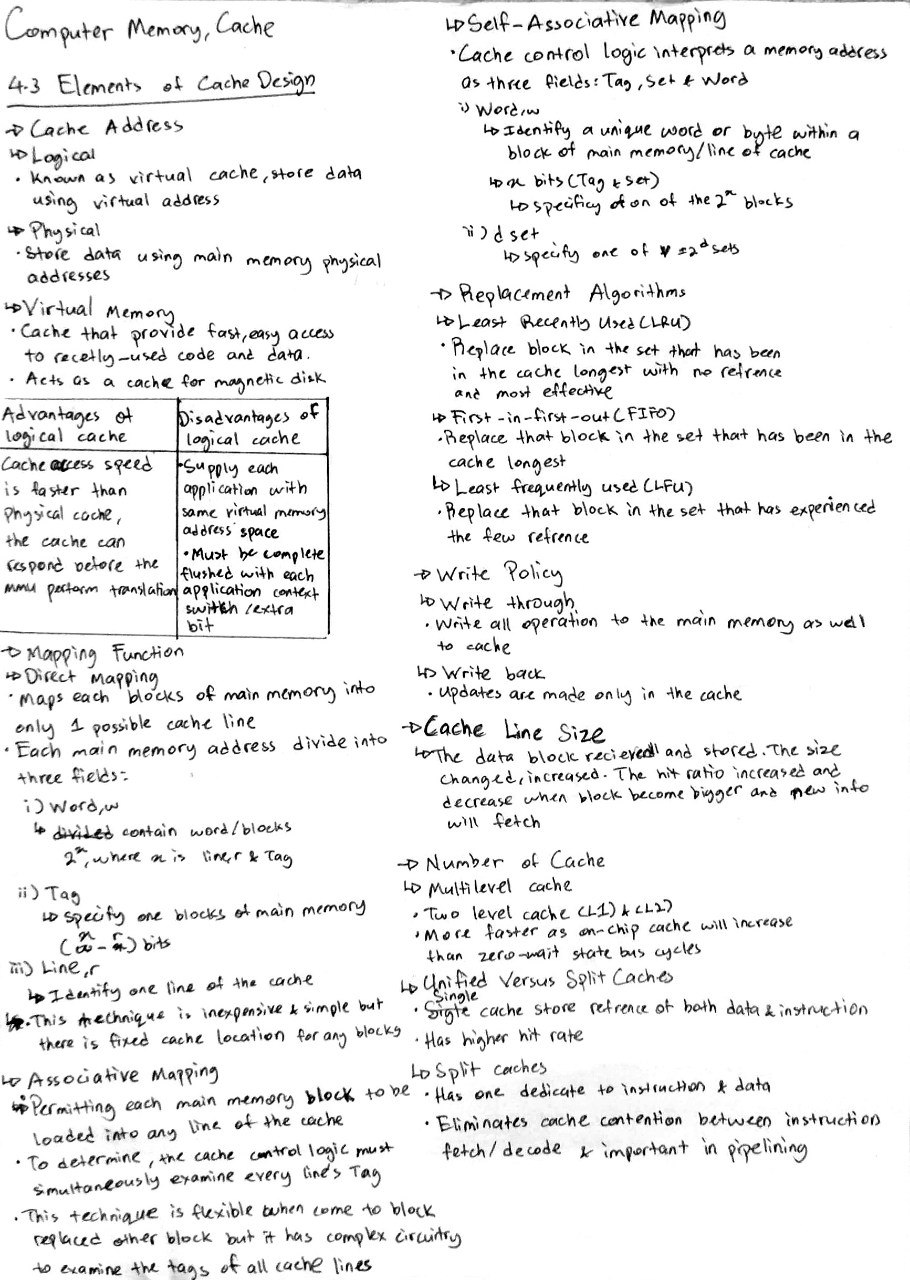 Computer Memory, Cache
4.3 Elements of Cache Design
→ Cache Address
↳ Logical
• Known as virtual cache, store data
using virtual address
↳ Physical
• Store data using main memory physical
addresses
↳ Virtual Memory
• Cache that provide fast, easy access
to recetly-used code and data.
• Acts as a cache for magnetic disk
Advantages of
logical cache
Cache access speed
is faster than
physical cache,
the cache can
respond before the
mmu perform translation
Disadvantages of
logical cache
• Supply each
application with
same virtual memory
address space
• Must be complete
flushed with each
application context
switch/extra
bit
→ Mapping Function
↳ Direct Mapping
• Maps each blocks of main memory into
only 1 possible cache line
• Each main memory address divide into
three fields:
i) Word, w
↳ divided contain word/blocks
2^x, where x is line, r & Tag
ii) Tag
↳ Specify one blocks of main memory
(x - r) bits
iii) Line, r
↳ Identify one line of the cache
• This technique is inexpensive & simple but
there is fixed cache location for any blocks
↳ Associative Mapping
• Permitting each main memory block to be
loaded into any line of the cache
• To determine, the cache control logic must
simultaneously examine every line's Tag
• This technique is flexible when come to block
replaced other block but it has complex circuitry
to examine the tags of all cache lines
↳ Self-Associative Mapping
• Cache control logic interprets a memory address
as three fields: Tag, Set & Word
i) Word, w
↳ Identify a unique word or byte within a
block of main memory/line of cache
↳ x bits (Tag & Set)
↳ specificy of on of the 2^x blocks
ii) d set
↳ specify one of v = 2^d sets
→ Replacement Algorithms
↳ Least Recently Used (LRU)
• Replace block in the set that has been
in the cache longest with no refrence
and most effective
↳ First-in-first-out (FIFO)
• Replace that block in the set that has been in the
cache longest
↳ Least frequently used (LFU)
• Replace that block in the set that has experienced
the few refrence
→ Write Policy
↳ Write through
• Write all operation to the main memory as well
to cache
↳ Write back
• Updates are made only in the cache
→ Cache Line Size
↳ The data block recieved and stored. The size
changed, increased. The hit ratio increased and
decrease when block become bigger and new info
will fetch
→ Number of Cache
↳ Multilevel cache
• Two level cache (L1) & (L2)
• More faster as on-chip cache will increase
than zero-wait state bus cycles
↳ Unified Versus Split Caches
• Single cache store refrence of both data & instruction
• Has higher hit rate
↳ Split caches
• Has one dedicate to instruction & data
• Eliminates cache contention between instruction
fetch/decode & important in pipelining